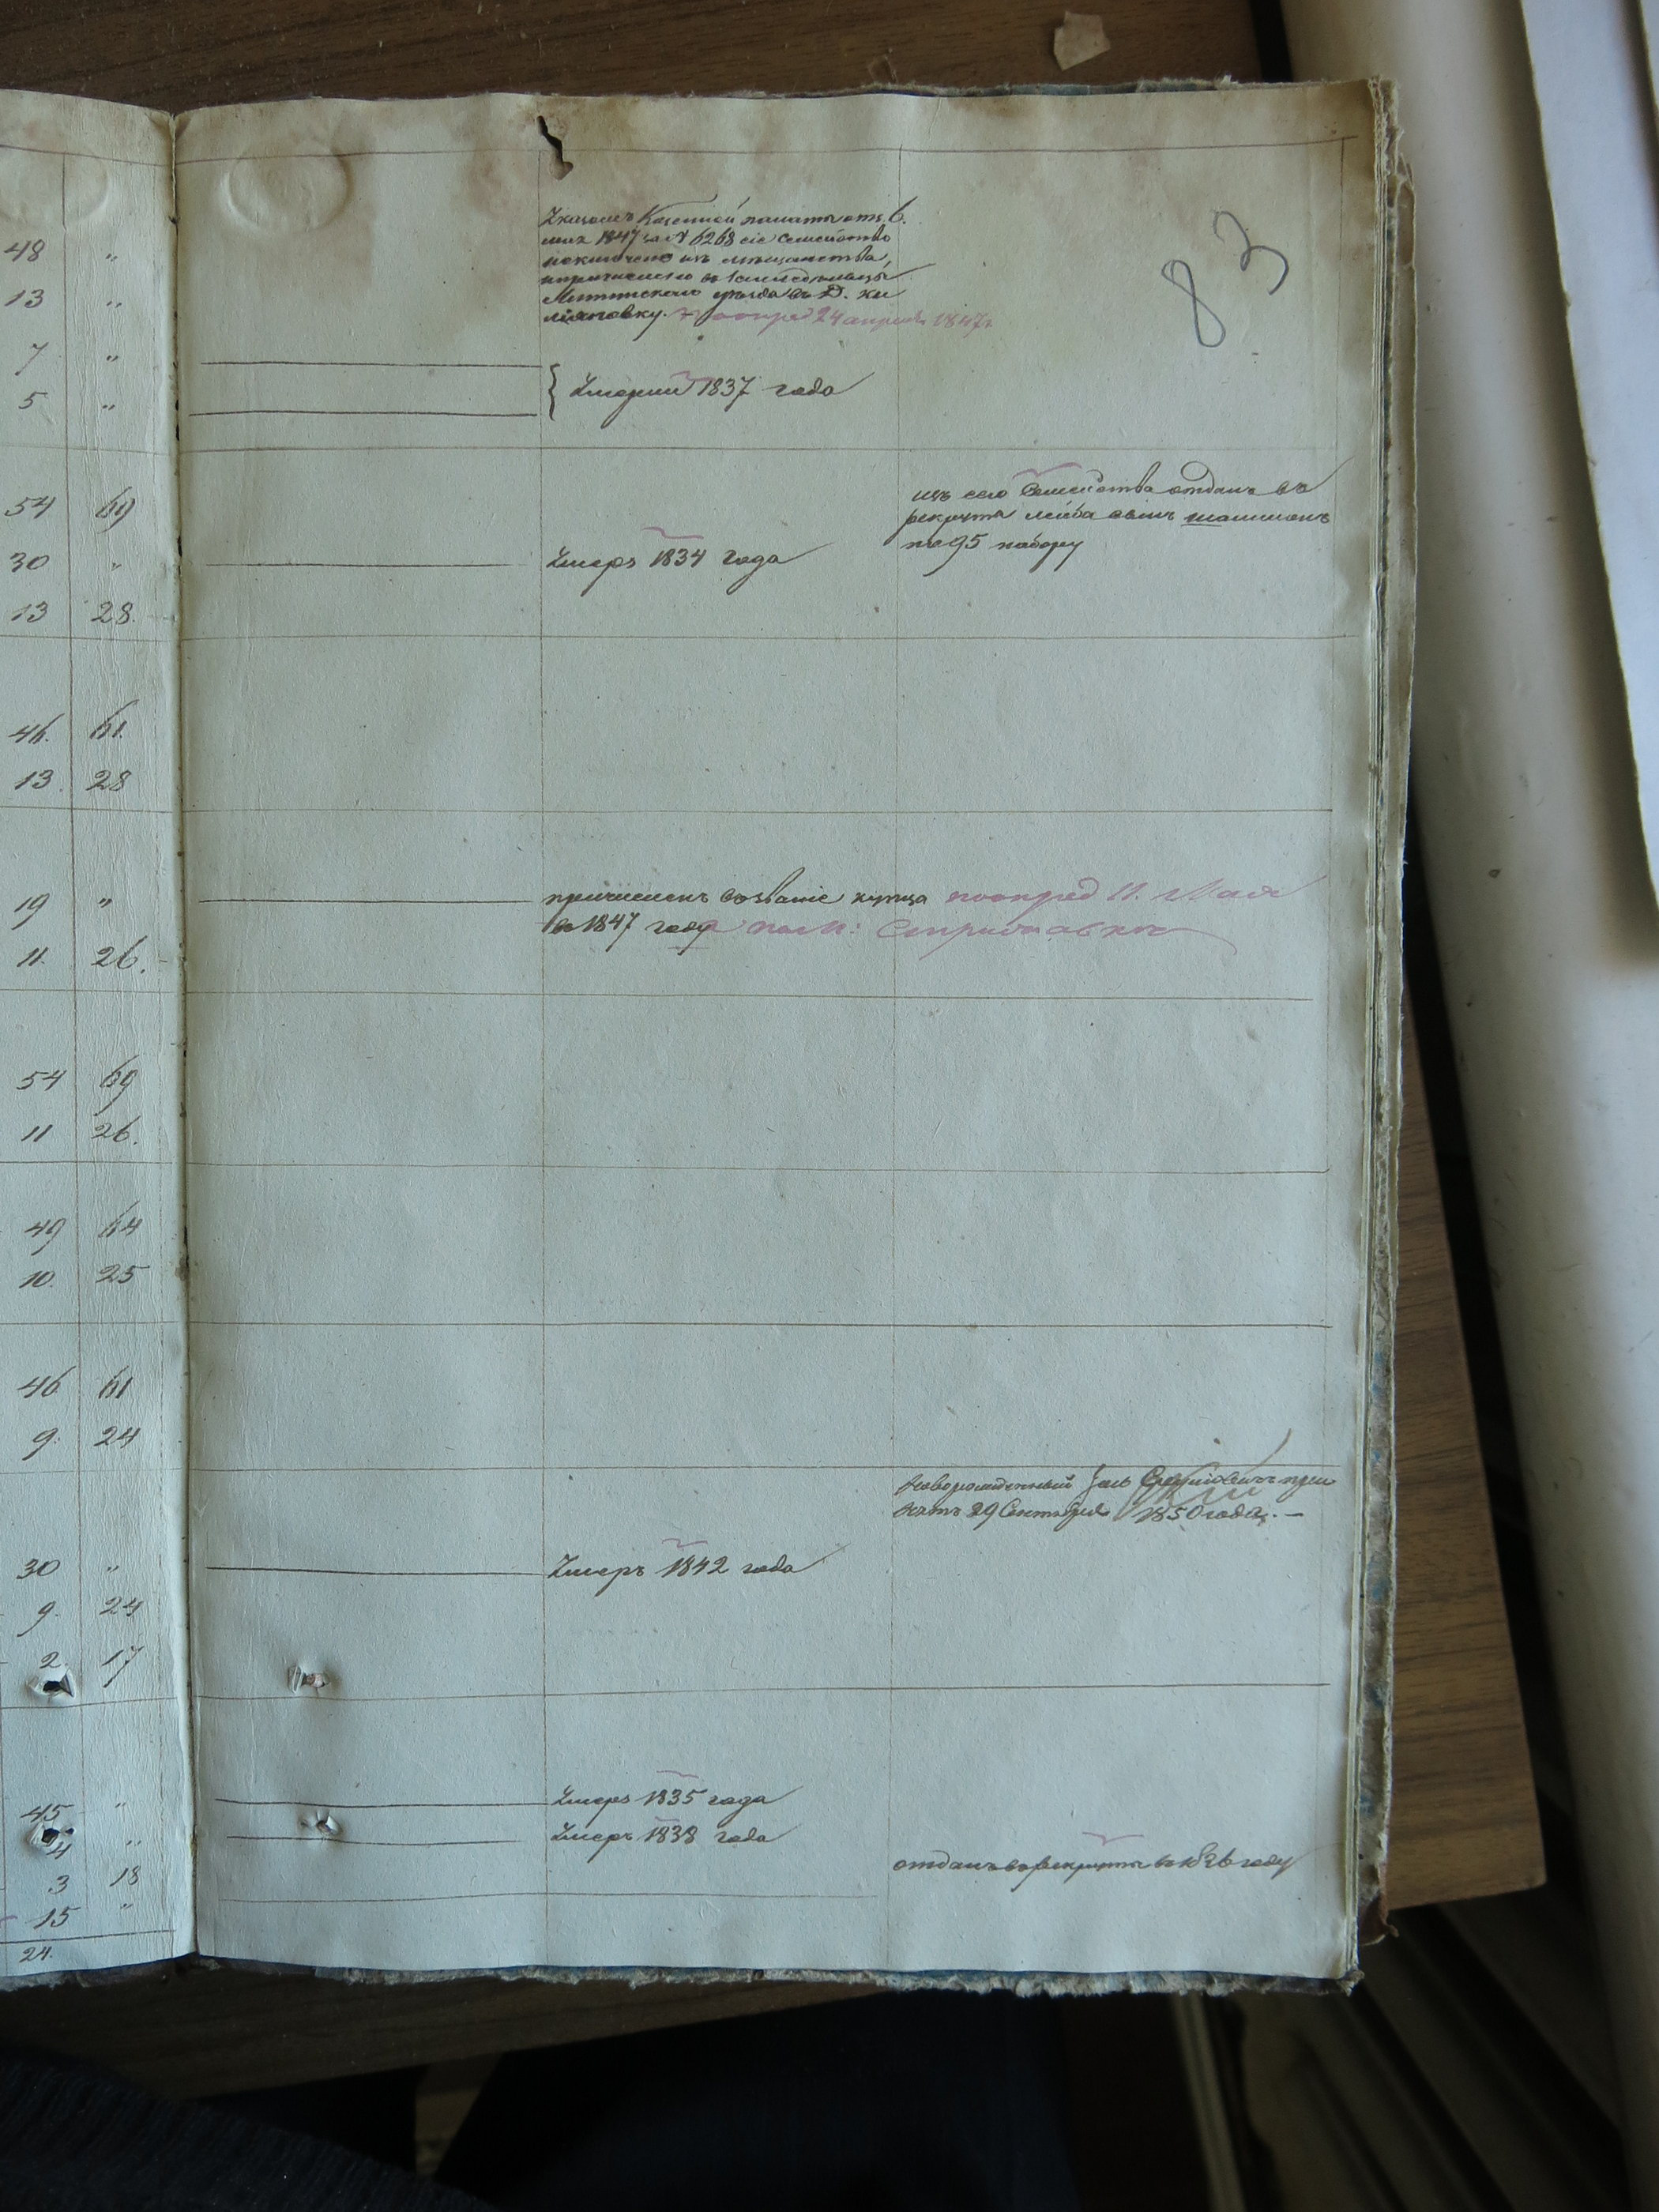 83
Указомъ Казенной палаты отъ 6.
мая 1847 за № 6268 сіе Семейство
исключено изъ мѣщанства
и причислено въ земледѣльцы
уѣзда въ Д.
по опред 24 апреля 1847
48 "
13 "
7 "
5 "
Умерли 1837 года
изъ сего Семейства отданъ въ
рекруты лейба сынъ
по 95 набору
54 69
30 " Умеръ 1834 года
13 28
46. 61.
13. 28
19 " причисленъ въ званіе купца по опред 11. Мая
въ 1847 году
11. 26.
54 69
11 26.
49 64
10. 25
46 61
9. 24
Новорожденный
29 Сентября 1850 года. —
30 " Умеръ 1842 года
9. 24
2. 17
45 " Умеръ 1835 года
4 " Умеръ 1838 года
3 18
отданъ въ рекруты въ 1836 году
15 "
24.